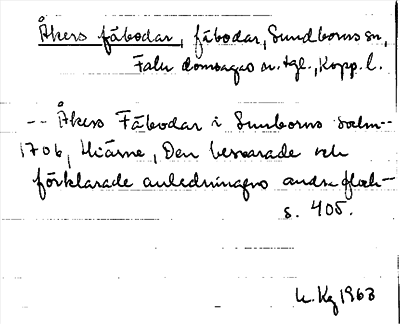 Åkers fäbodar, fäbodar, Sundborns sn,
Falu domsagas n. tgl., Kopp. l.
-- Åkers Fäbodar i Sunborns sokn--
1706, Hiärne, Den beswarade och
förklarade anledningens andre flock--
s. 405.
1963